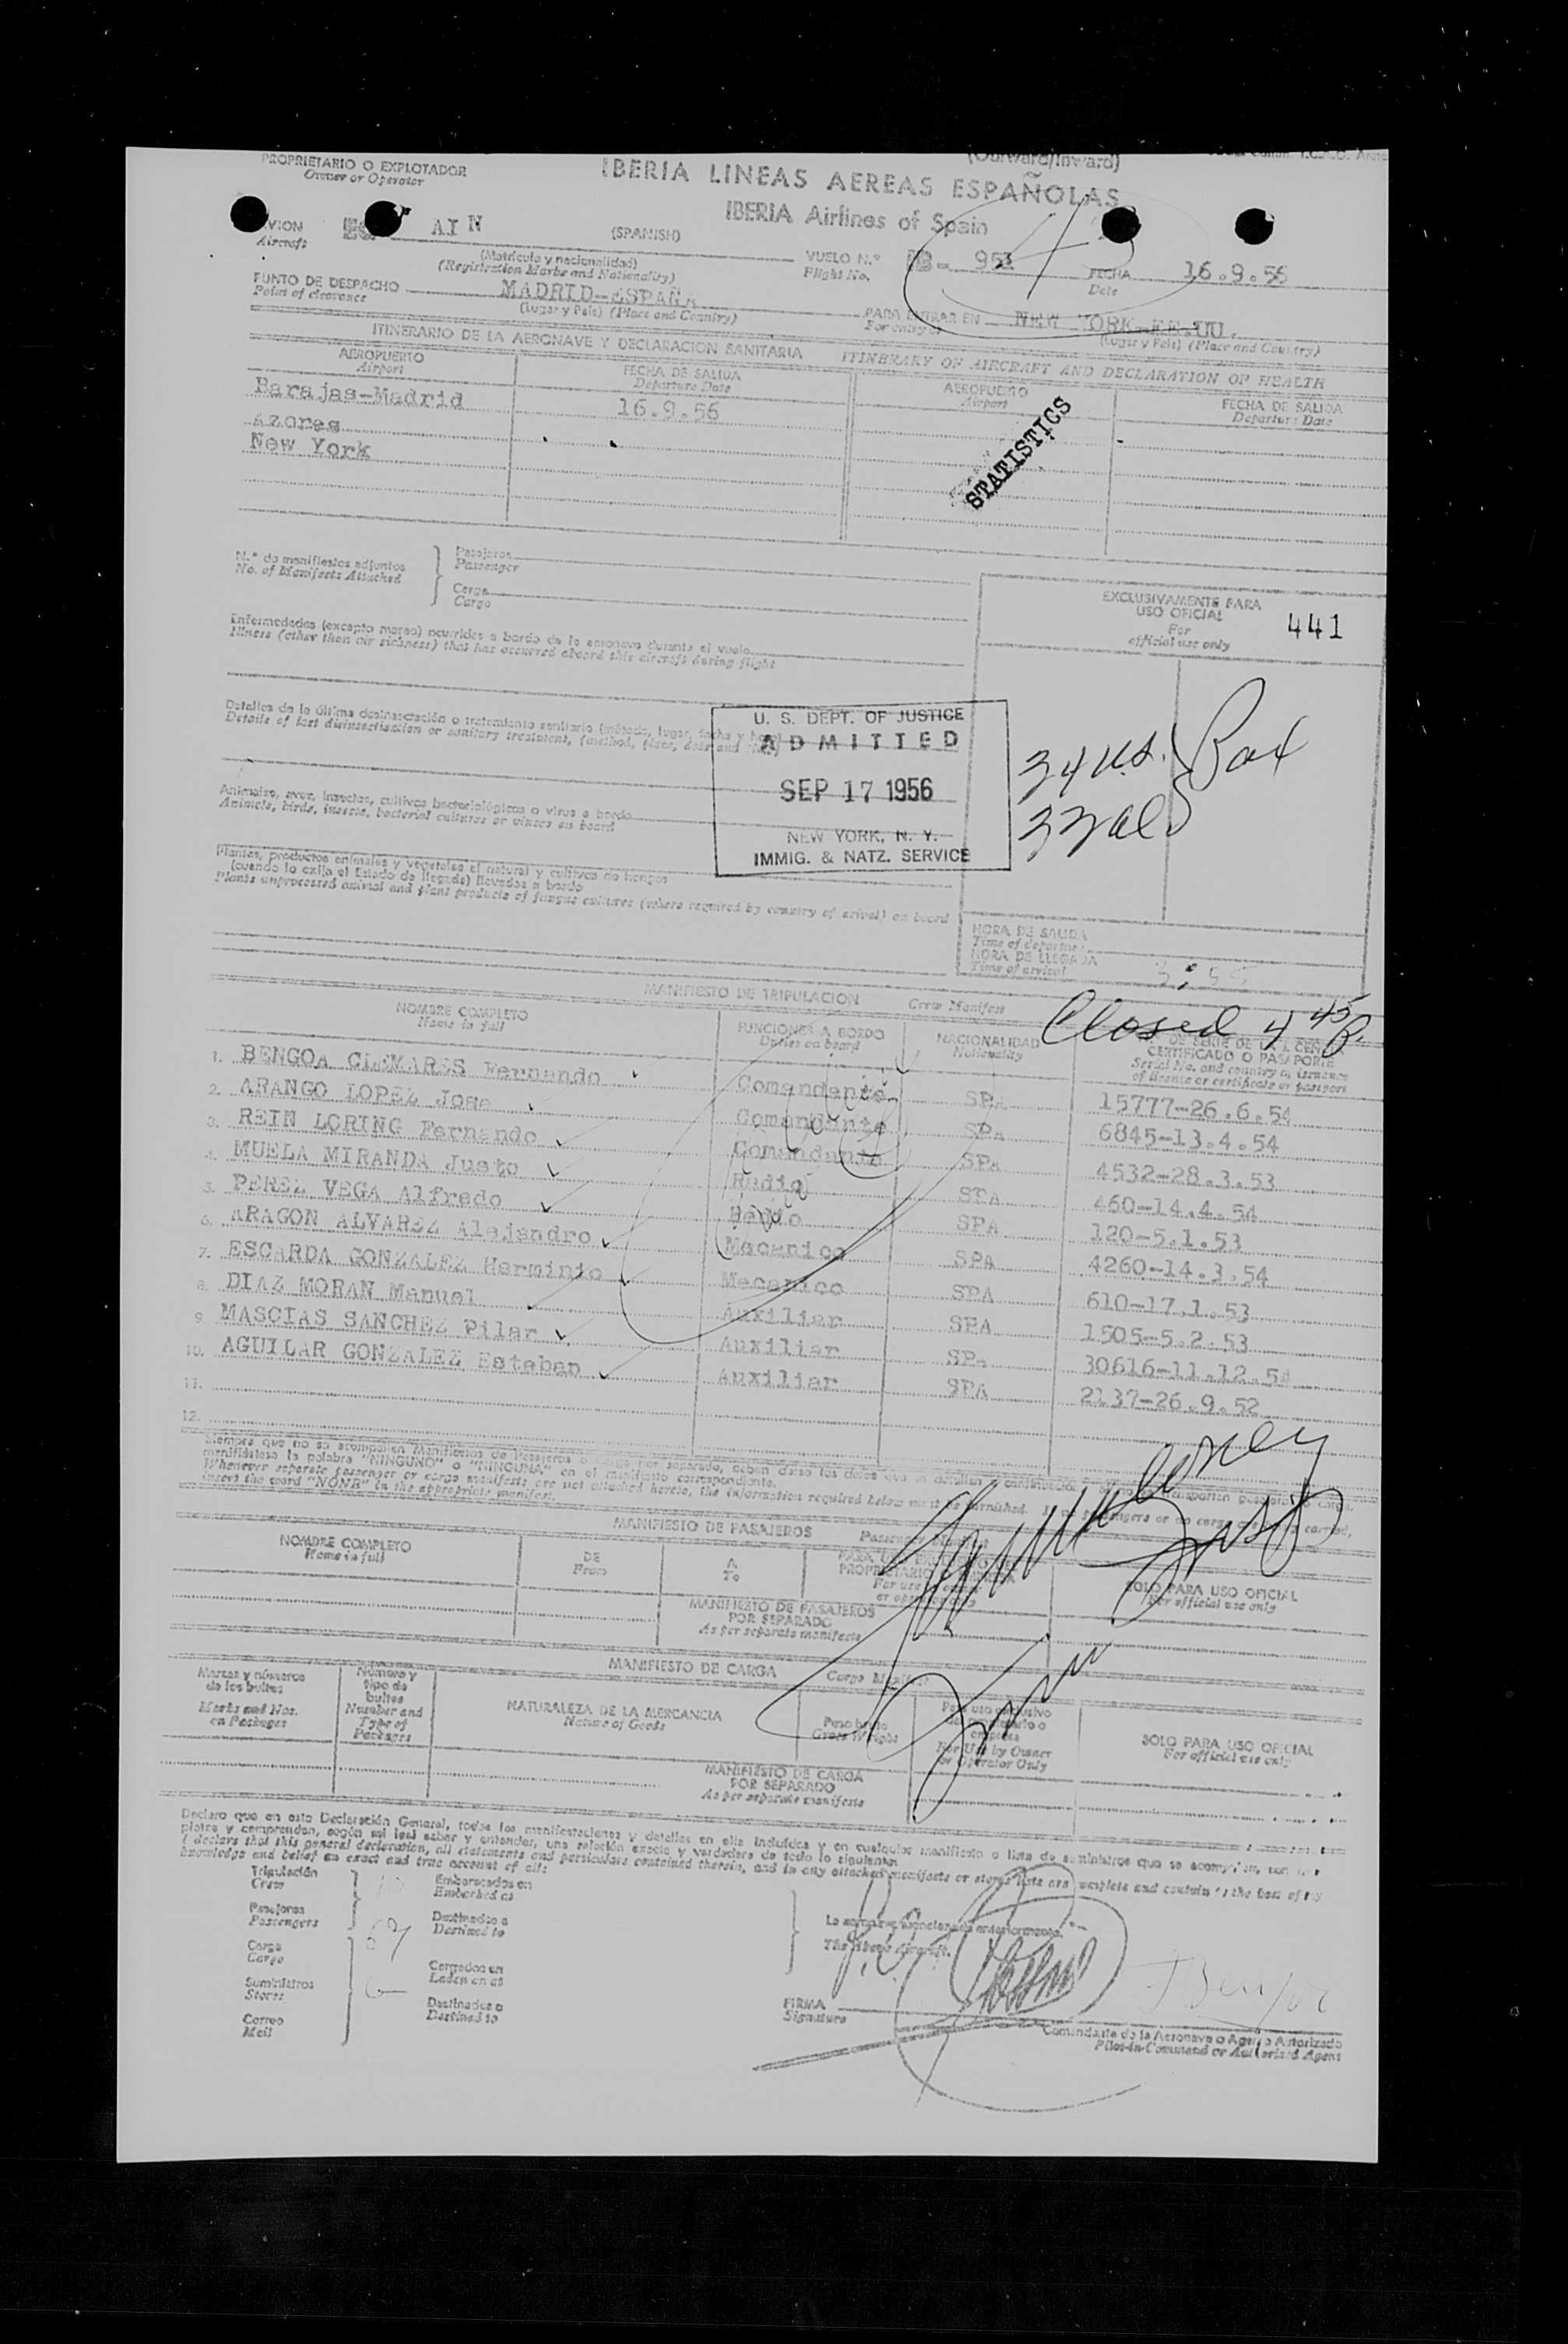 (Outward/Inward)
PROPRIETARIO O EXPLOTADOR
Owner or Operator
IBERIA LINEAS AEREAS ESPAÑOLAS
IBERIA Airlines of Spain
AVION AIN (SPANISH)
Aircraft
(Matrícula y nacionalidad)
(Registration Marks and Nationality)
VUELO N.º 953
Flight No.
FECHA 16.9.56
Date
PUNTO DE DESPACHO MADRID-ESPAÑA
Point of clearance
(Lugar y País) (Place and Country)
PARA ENTRAR EN NEW YORK-EE.UU.
For entry at
(Lugar y País) (Place and Country)
ITINERARIO DE LA AERONAVE Y DECLARACION SANITARIA ITINERARY OF AIRCRAFT AND DECLARATION OF HEALTH
AEROPUERTO FECHA DE SALIDA AEROPUERTO FECHA DE SALIDA
Airport Departure Date Airport Departure Date
Barajas-Madrid 16.9.56
Azores
New York
STATISTICS
N.º de manifiestos adjuntos
No. of Manifests Attached
Pasajeros
Passenger
Carga
Cargo
EXCLUSIVAMENTE PARA
USO OFICIAL
For
official use only
441
Enfermedades (excepto mareo) ocurridas a bordo de la aeronave durante el vuelo
Illness (other than air sickness) that has occurred aboard this aircraft during flight
Detalles de la última desinsectación o tratamiento sanitario (método, lugar, fecha y
Details of last disinsectisation or sanitary treatment, (method, place, date and
U. S. DEPT. OF JUSTICE
ADMITTED
SEP 17 1956
NEW YORK, N. Y.
IMMIG. & NATZ. SERVICE
34 U.S.
Animales, aves, insectos, cultivos bacteriológicos o virus a bordo
Animals, birds, insects, bacterial cultures or viruses on board
Plantas, productos animales y vegetales al natural y cultivos de hongos
(cuando lo exija el Estado de llegada) llevados a bordo
Plants unprocessed animal and plant products of fungus cultures (where required by country of arival) on board
HORA DE SALIDA
Time of departure
HORA DE LLEGADA
Time of arrival
MANIFIESTO DE TRIPULACION Crew Manifest
Closed 4 45 P.
NOMBRE COMPLETO FUNCIONES A BORDO NACIONALIDAD
Name in full Duties on board Nationality
CERTIFICADO O PASAPORTE
Serial No. and country of issuance
of licence or certificate or passport
1. BENGOA CLEMARES Fernando Comandante SPA 15777-26.6.54
2. ARANGO LOPEZ Jose Comandante SPA 6845-13.4.54
3. REIN LORING Fernando Comandante SPA 4532-28.3.53
4. MUELA MIRANDA Justo Radio SPA 460-14.4.54
5. PEREZ VEGA Alfredo Radio SPA 120-5.1.53
6. ARAGON ALVAREZ Alejandro Mecanico SPA 4260-14.3.54
7. ESCARDA GONZALEZ Herminio Mecanico SPA 610-17.1.53
8. DIAZ MORAN Manuel Auxiliar SPA 1505-5.2.53
9. MASCIAS SANCHEZ Pilar Auxiliar SPA 30616-11.12.54
10. AGUILAR GONZALEZ Esteban Auxiliar SPA 2137-26.9.52
11.
12.
manifiéstese la palabra "NINGUNO" o "NINGUNA" en el manifiesto correspondiente.
Whenever separate passenger or cargo manifests are not attached hereto, the information required below must be furnished.
insert the word "NONE" in the appropriate manifest.
MANIFIESTO DE PASAJEROS
NOMBRE COMPLETO DE A
Name in full From To
SOLO PARA USO OFICIAL
For official use only
MANIFIESTO DE PASAJEROS
POR SEPARADO
As per separate manifests
MANIFIESTO DE CARGA Cargo Manifest
Marcas y números
de los bultos
Marks and Nos.
on Packages
Número y
tipo de
bultos
Number and
Type of
Packages
NATURALEZA DE LA MERCANCIA
Nature of Goods
Peso bruto
Gross Weight
For Use by Owner
or Operator Only
SOLO PARA USO OFICIAL
For official use only
MANIFIESTO DE CARGA
POR SEPARADO
As per separate manifests
Declaro que en esta Declaración General, todas las manifestaciones y detalles en ella incluídos y en cualquier manifiesto o lista de suministros que se acompañan, son
pletos y comprenden, según mi leal saber y entender, una relación exacta y verdadera de todo lo siguiente:
I declare that this general declaration, all statements and particulars contained therein, and in any attached manifests or stores lists are complete and contain to the best of my
knowledge and belief an exact and true account of all:
Tripulación
Crew
Pasajeros
Passengers
Carga
Cargo
Suministros
Stores
Correo
Mail
Embarcados en
Embarked at
Destinados a
Destined to
Cargados en
Laden on at
Destinados a
Destined to
The above Aircraft.
FIRMA
Signature
Comandante de la Aeronave o Agente Autorizado
Pilot-in-Command or Authorised Agent